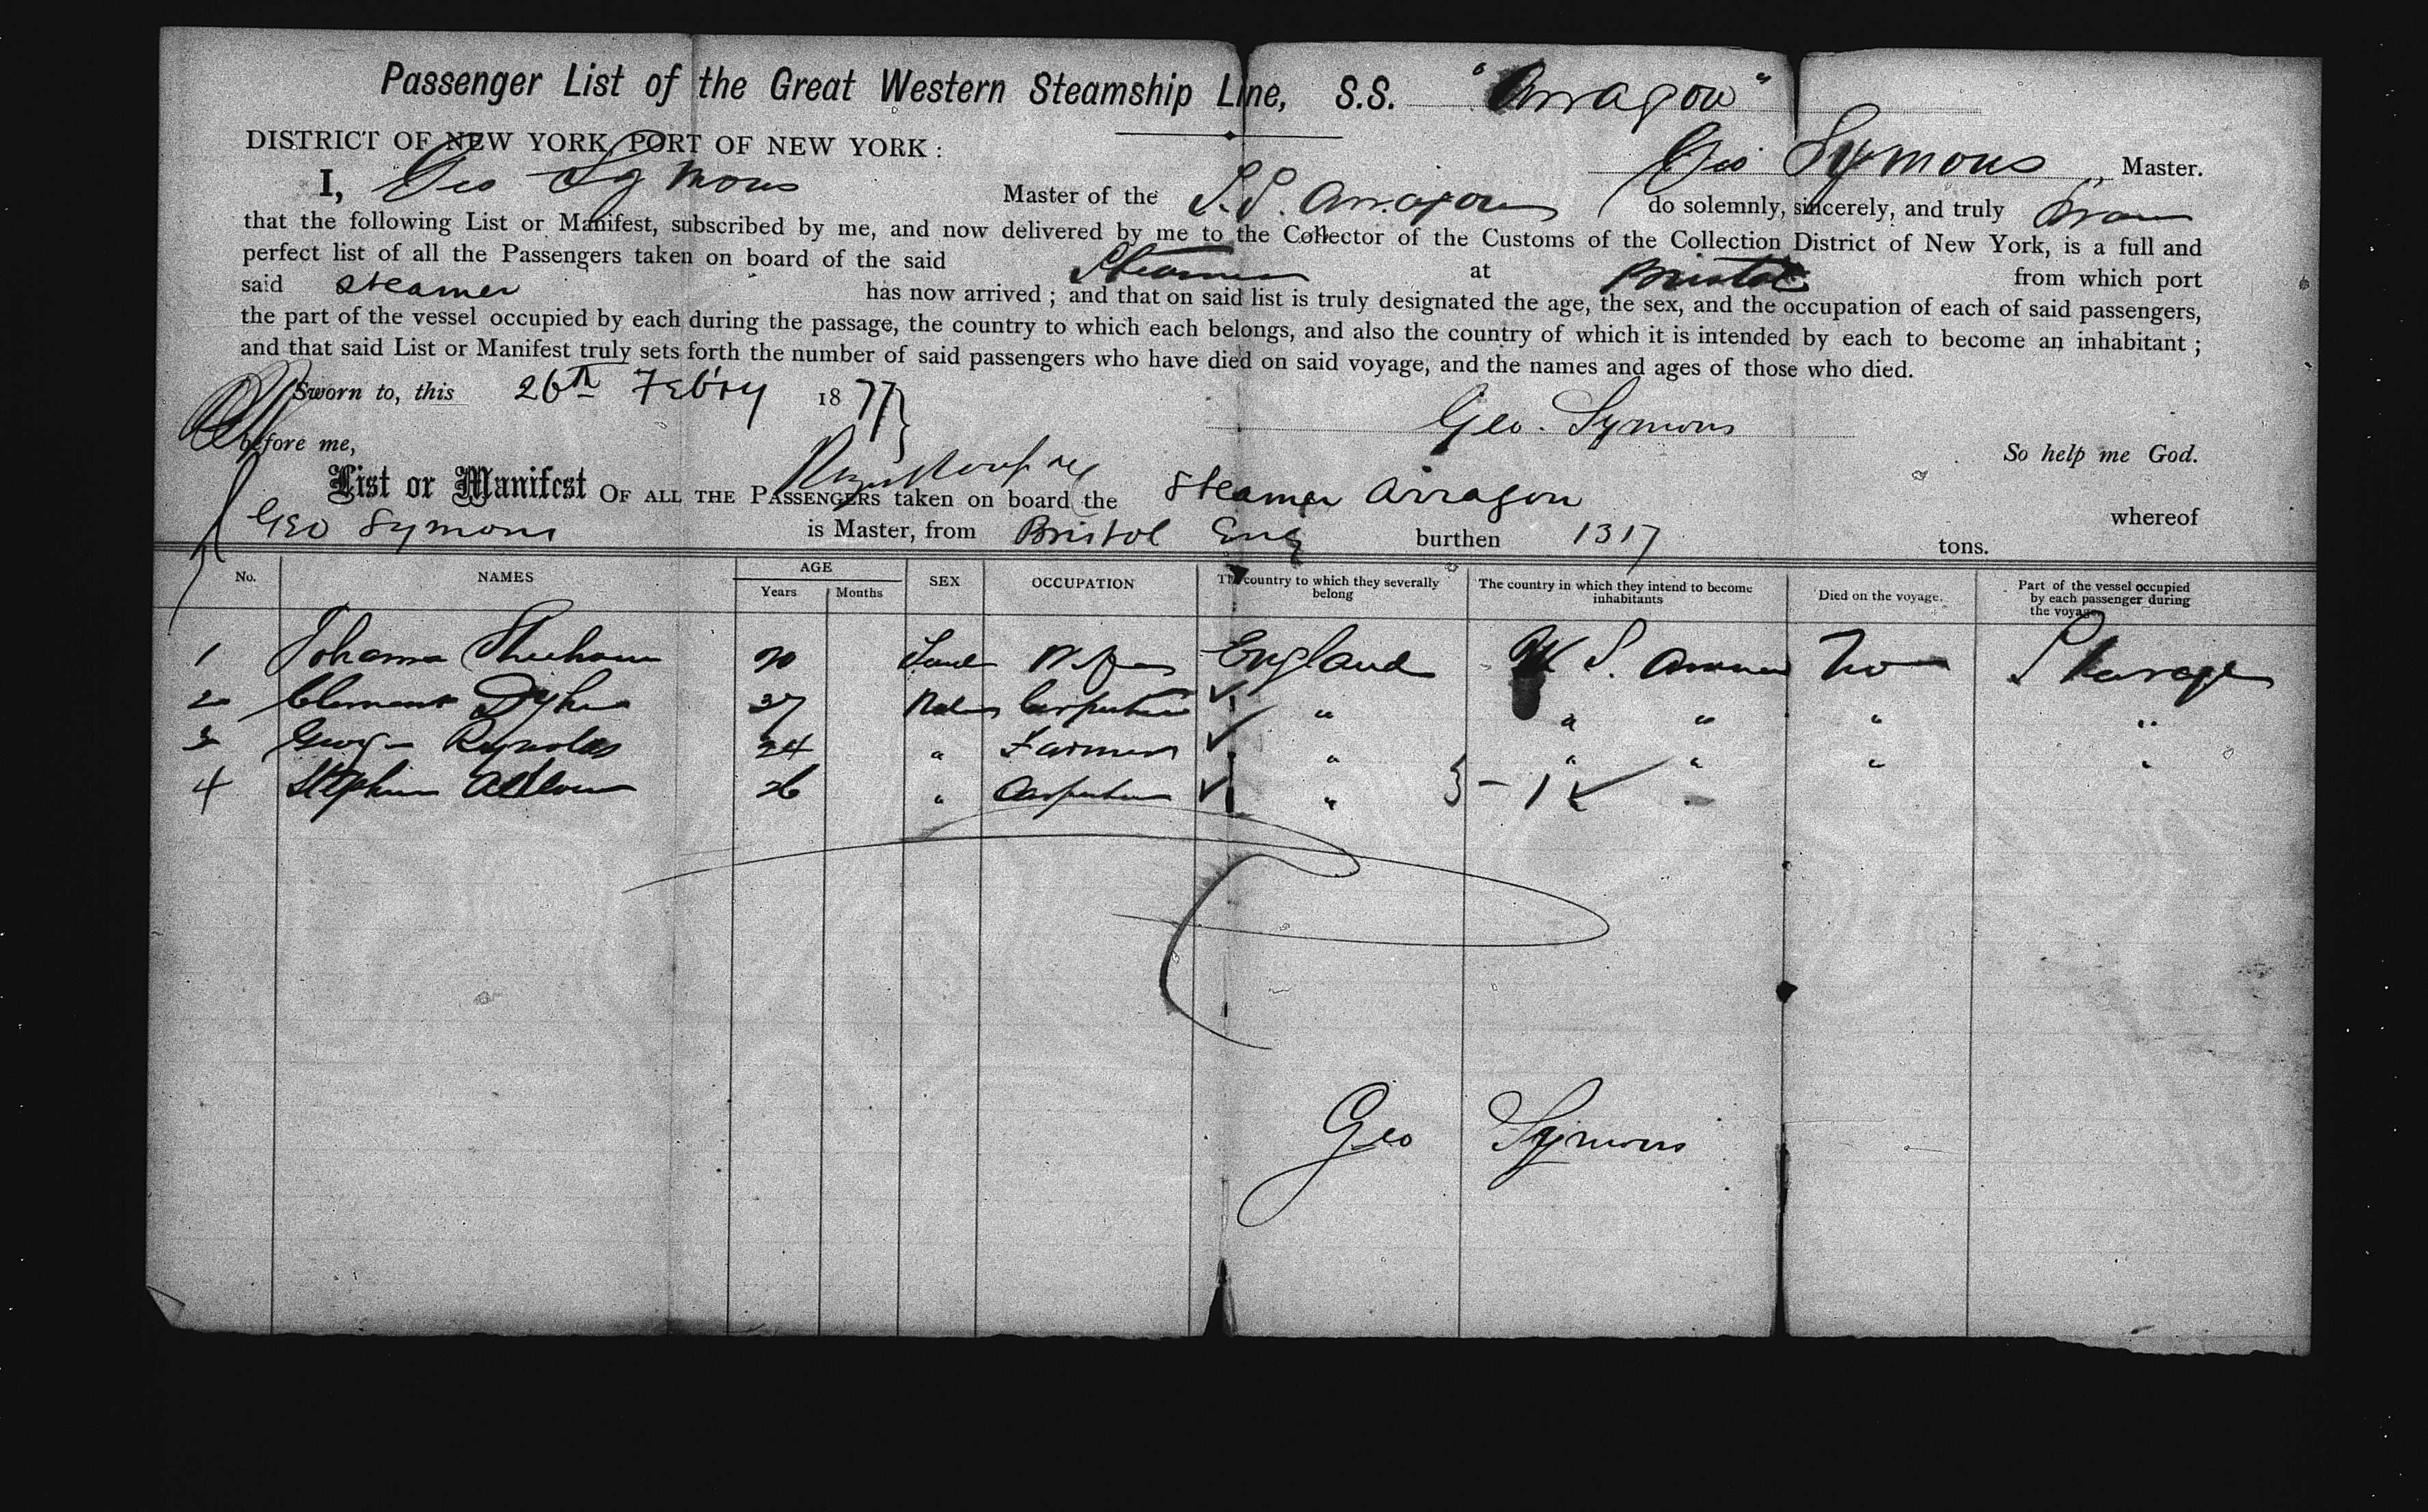 Passenger List of the Great Western Steamship Line, S.S. "Arragon"
DISTRICT OF NEW YORK, PORT OF NEW YORK:
Geo Symons, Master.
I, Geo Symons Master of the S.S. Arragon do solemnly, sincerely, and truly Swear
that the following List or Manifest, subscribed by me, and now delivered by me to the Collector of the Customs of the Collection District of New York, is a full and
perfect list of all the Passengers taken on board of the said Steamer at Bristol from which port
said steamer has now arrived; and that on said list is truly designated the age, the sex, and the occupation of each of said passengers,
the part of the vessel occupied by each during the passage, the country to which each belongs, and also the country of which it is intended by each to become an inhabitant;
and that said List or Manifest truly sets forth the number of said passengers who have died on said voyage, and the names and ages of those who died.
Sworn to, this 26th Feb'ry 1877
Geo. Symons
before me,
So help me God.
List or Manifest OF ALL THE PASSENGERS taken on board the Steamer Arragon whereof
Geo Symons is Master, from Bristol Eng burthen 1317 tons.
No. NAMES AGE Years Months SEX OCCUPATION The country to which they severally belong The country in which they intend to become inhabitants Died on the voyage. Part of the vessel occupied by each passenger during the voyage.
1 Johanna Sheehan 20 England U S. America No Steerage
2 Clement Dyke 37 Male Carpenter " " " " "
3 George Reynolds 24 " Farmer " " " " "
4 Stephen 26 " Carpenter " - 1
Geo Symons